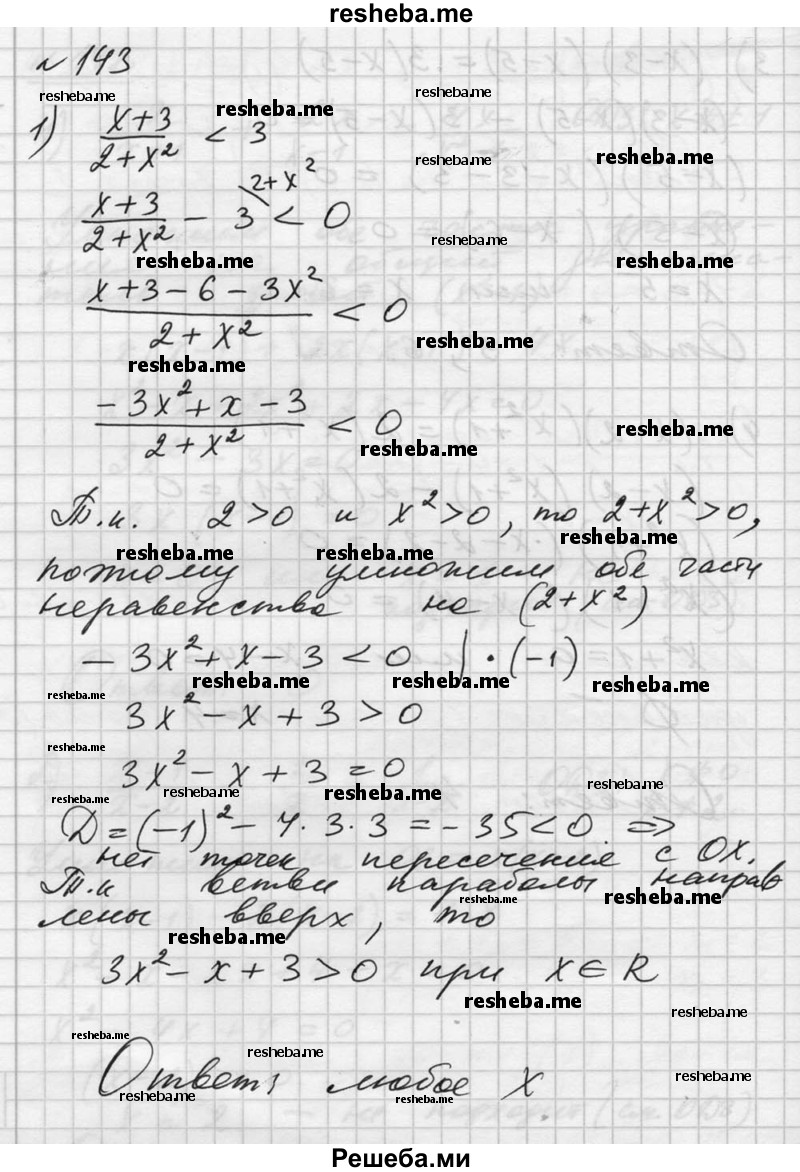 resheba.me
№ 143
resheba.me
resheba.me
resheba.me
1) (x+3)/(2+x²) < 3
resheba.me
resheba.me
(x+3)/(2+x²) - 3 < 0
2+x²
resheba.me
resheba.me
resheba.me
(x+3-6-3x²)/(2+x²) < 0
resheba.me
resheba.me
(-3x²+x-3)/(2+x²) < 0
resheba.me
resheba.me
Т.к. 2>0 и x²>0, то 2+x²>0,
resheba.me
resheba.me
resheba.me
поэтому умножим обе части
неравенства на (2+x²)
-3x²+x-3<0 | ·(-1)
resheba.me
resheba.me
resheba.me
resheba.me
3x²-x+3>0
resheba.me
3x²-x+3=0
resheba.me
resheba.me
resheba.me
resheba.me
D=(-1)²-4·3·3=-35<0 ⇒
нет точек пересечения с OX.
Т.к ветви параболы направ
resheba.me
resheba.me
лены вверх, то
resheba.me
3x²-x+3>0 при x∈R
resheba.me
resheba.me
resheba.me
resheba.me
Ответ: любое x
resheba.me
resheba.me
resheba.me
Решеба.ми